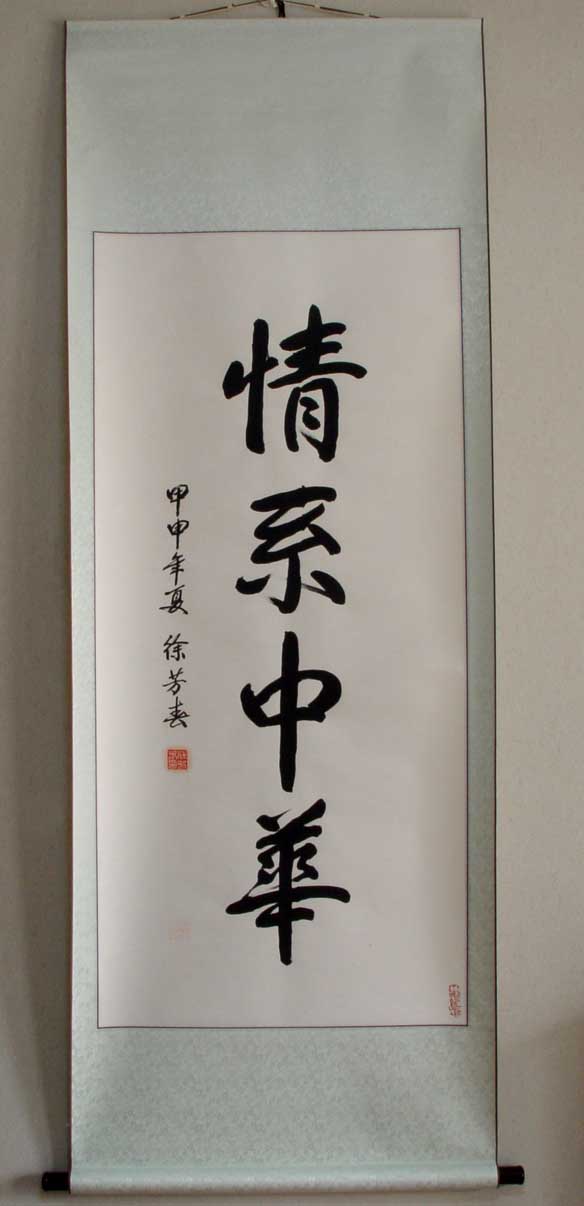 情系中華
甲申年夏 徐芳春